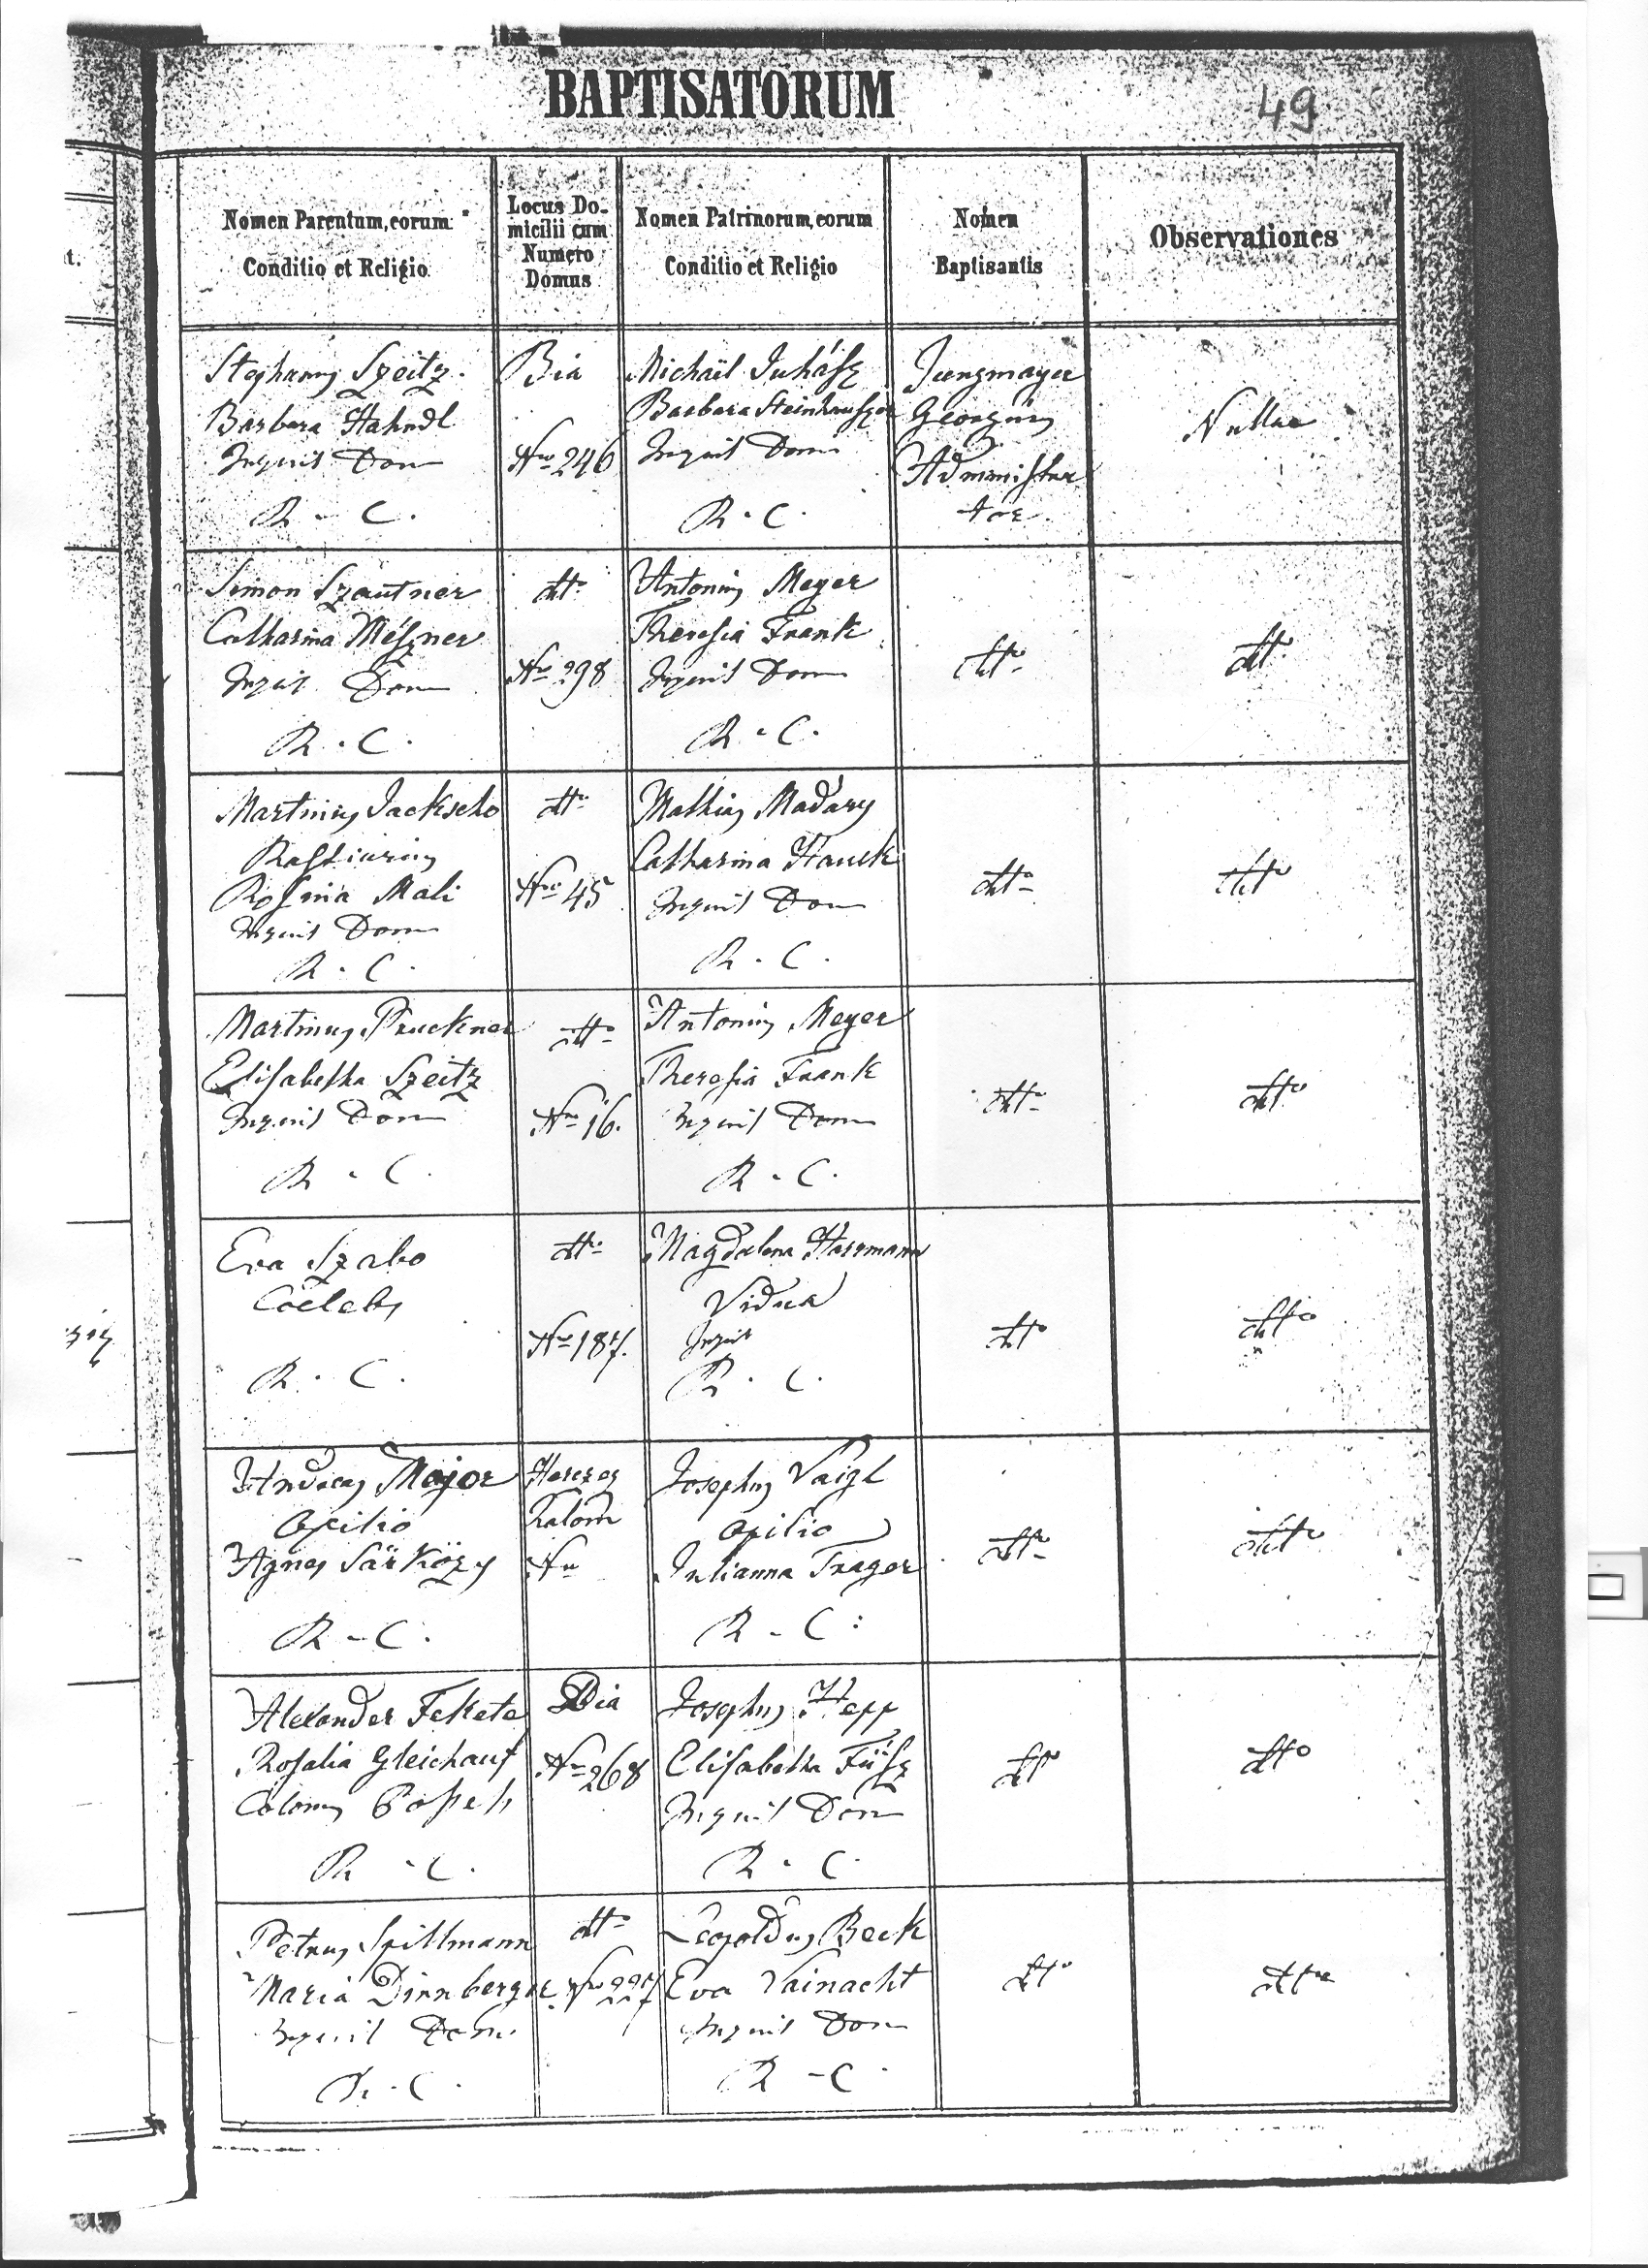 BAPTISATORUM
49
Nomen Parentum, eorum
Conditio et Religio
Locus Do-
micilii cum
Numero
Domus
Nomen Patrinorum, eorum
Conditio et Religio
Nomen
Baptisantis
Observationes
t.
Stephanus Szeitz.
Barbara Hahndl
Inquil Dom
R - C.
Bia
Nro 246
Michaël Juhász
Barbara Steinhauszer
Inquil Dom
R. C.
Jungmayer
Georgius
Administra
tor.
Nullae
Simon Szautner
Catharina Mészner
Inquil Dom
R. C.
dtto
Nro 298
Antonius Meyer
Theresia Frank
Inquil Dom
R. C.
dtto
dtto
Martinus Jackscho
Rosina Mali
Inquil Dom
R. C.
dtto
Nro 45
Mathias Madary
Catharina Hauck
Inquil Dom
R. C.
dtto
dtto
Martinus Pruckner
Elisabetha Szeitz
Inquil Dom
R. C.
dtto
Nro 16.
Antonius Meyer
Theresia Frank
Inquil Dom
R. C.
dtto
dtto
Eva Szabo
Coelebs
R. C.
dtto
Nro 187.
Magdalena Herrmann
Vidua
Inquil
R. C.
dtto
dtto
Andreas Major
Opilio
Agnes Sárközy
R - C.
Herczeg
halom
Nro
Josephus Vaigl
opilio
Julianna Trager
R - C:
dtto
dtto
Alexander Fekete
Rosalia Gleichauf
Colonus
R - C.
Bia
Nro 268
Josephus Hepp
Elisabetha Füsz
Inquil Dom
R. C.
dtto
dtto
Petrus Spillmann
Maria Dinnberger
Inquil Dom.
R. C.
dtto
Nro 227
Leopoldus Beck
Eva Vainacht
Inquil Dom
R - C.
dtto
dtto